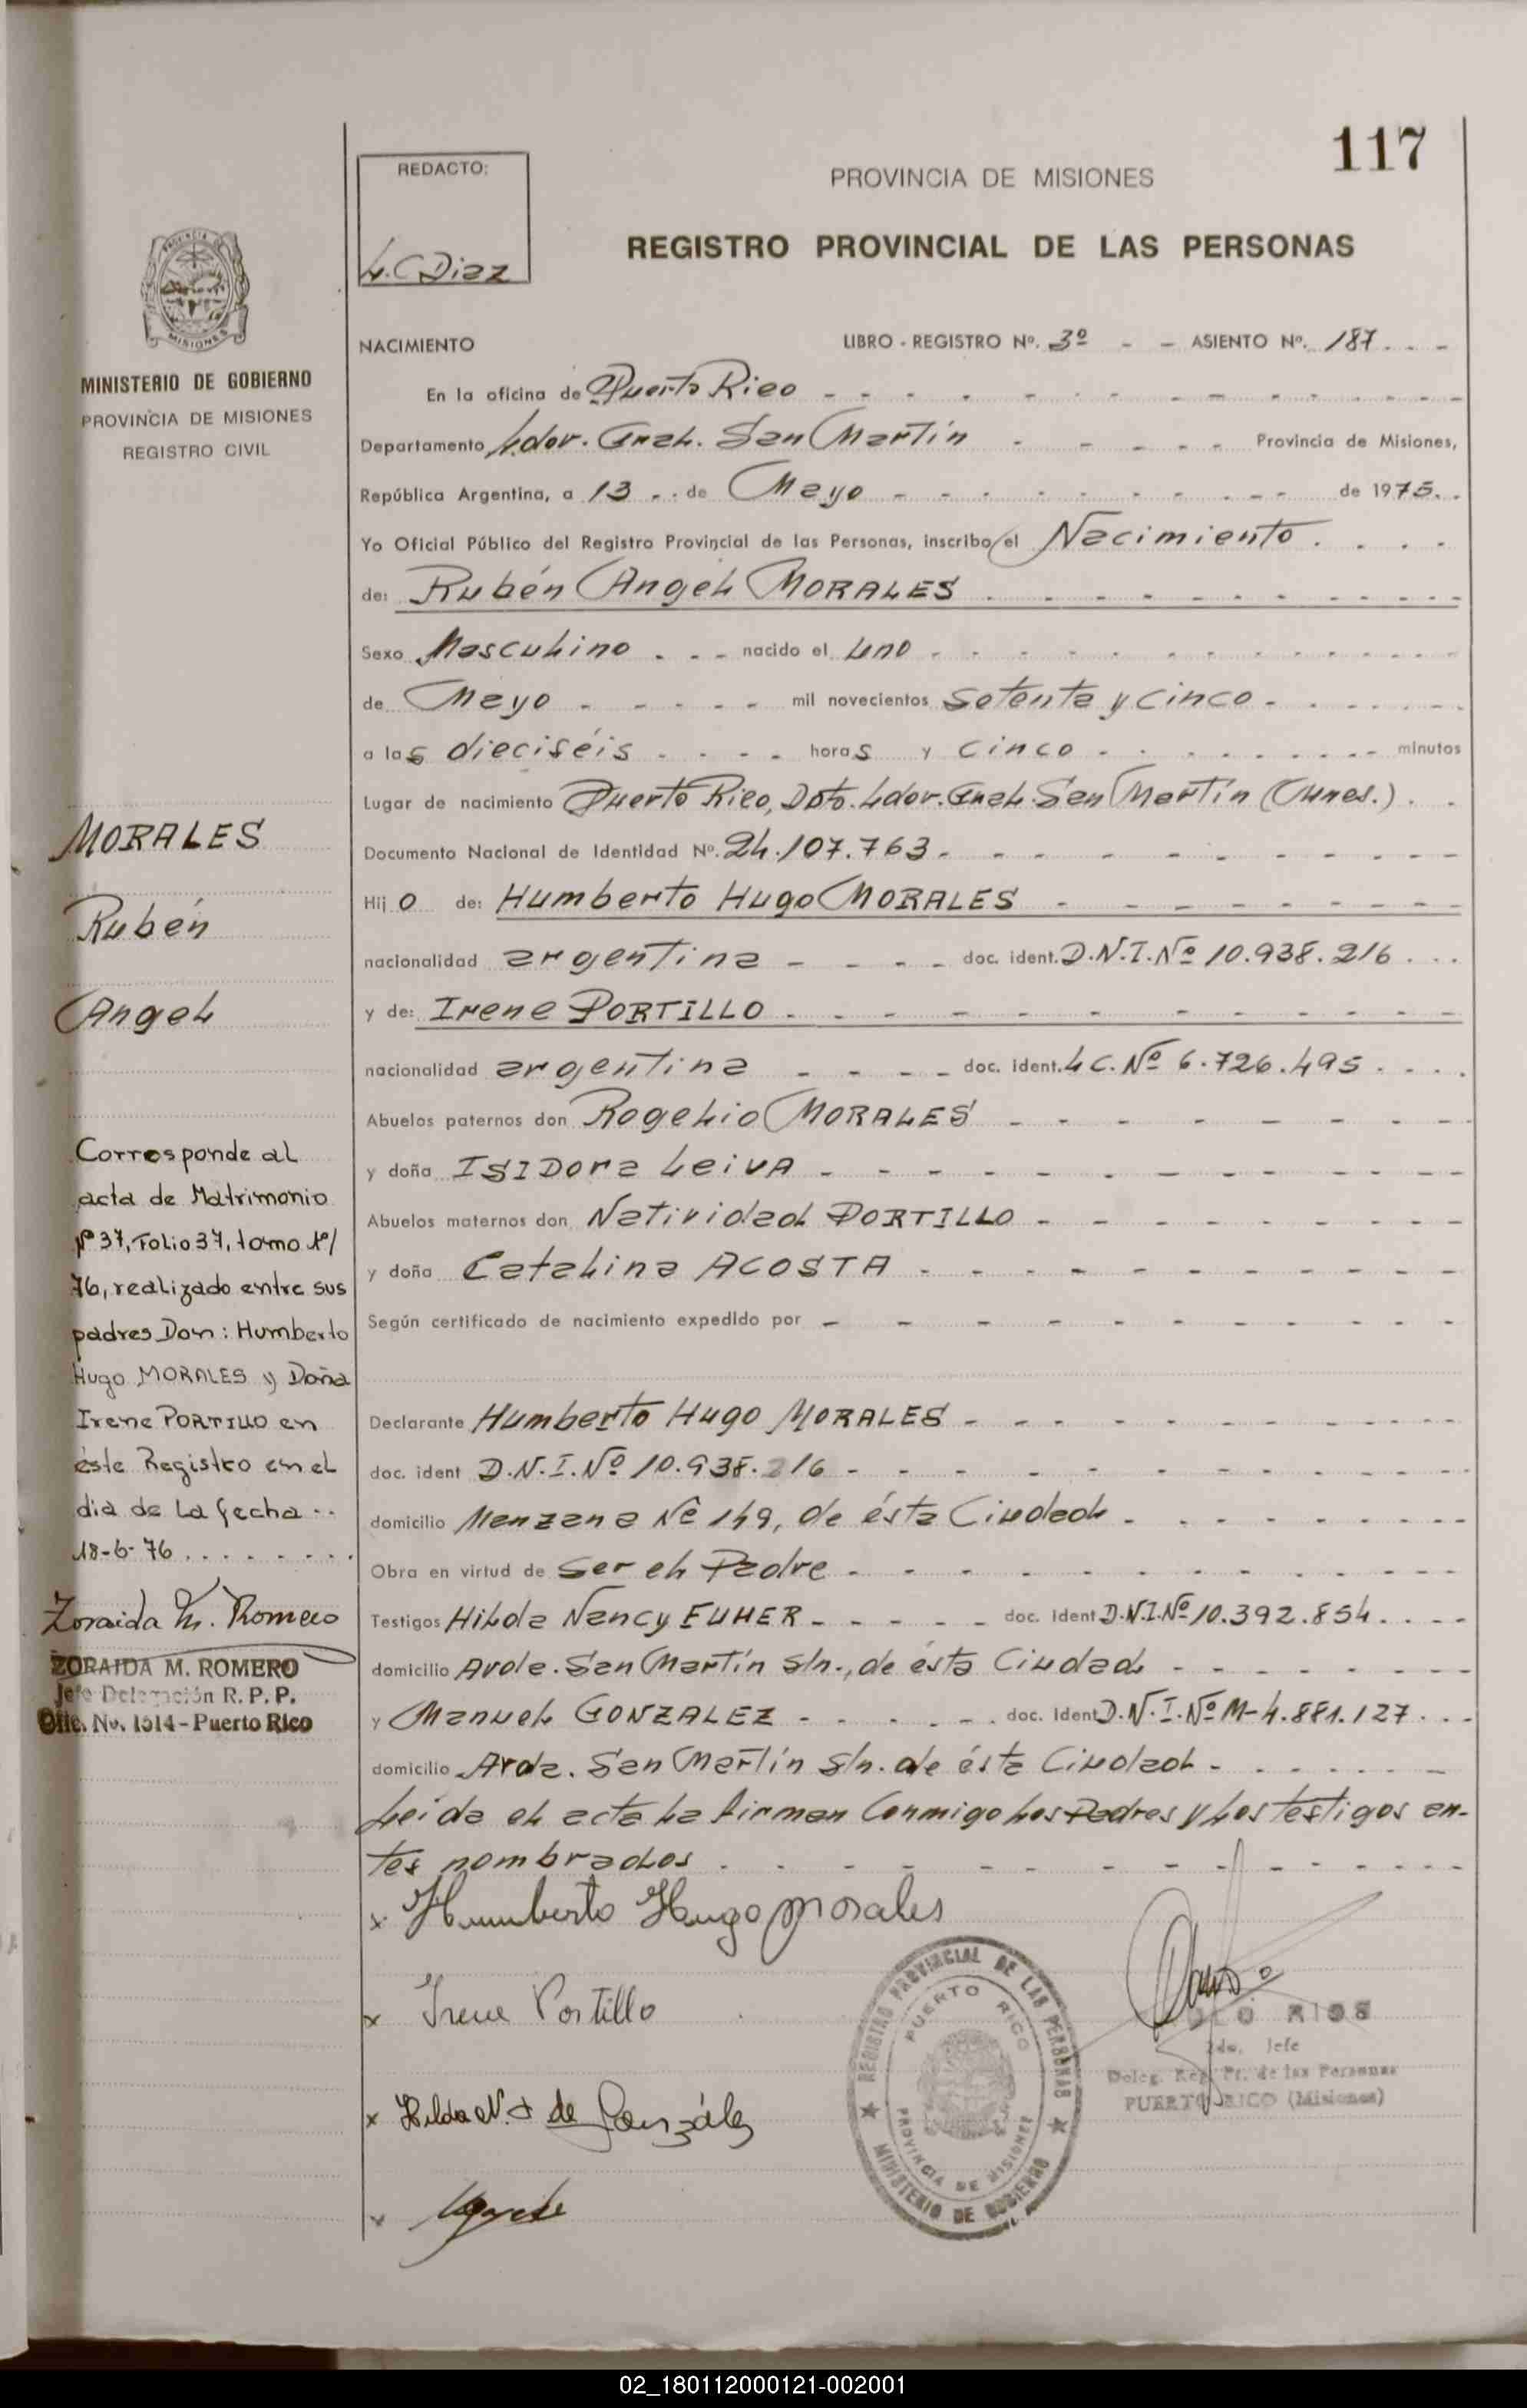 117
REDACTO:
L.C Diaz
PROVINCIA DE MISIONES
REGISTRO PROVINCIAL DE LAS PERSONAS
MINISTERIO DE GOBIERNO
PROVINCIA DE MISIONES
REGISTRO CIVIL
NACIMIENTO LIBRO - REGISTRO Nº. 3º - - ASIENTO Nº. 187 . - -
En la oficina de Puerto Rico
Departamento Ldor. Gral. San Martín Provincia de Misiones,
República Argentina, a 13 . . de Mayo de 1975. .
Yo Oficial Público del Registro Provincial de las Personas, inscribo el Nacimiento
de: Rubén Angel MORALES
Sexo Masculino nacido el uno
de Mayo mil novecientos setenta y cinco
a las dieciséis horas y cinco minutos
Lugar de nacimiento Puerto Rico, Dpto. Ldor. Gral. San Martín (Mnes.)
Documento Nacional de Identidad Nº. 24.107.763
Hijo de: Humberto Hugo MORALES
nacionalidad argentina doc. ident. D.N.I.Nº 10.938.216
y de: Irene PORTILLO
nacionalidad argentina doc. ident. LC. Nº 6.726.495
Abuelos paternos don Rogelio MORALES
y doña ISIDora LeivA
Abuelos maternos don Natividad PORTILLO
y doña Catalina ACOSTA
Según certificado de nacimiento expedido por
Declarante Humberto Hugo MORALES
doc. ident D.N.I.Nº 10.938.216
domicilio Manzana Nº 149, de ésta Ciudad
Obra en virtud de ser el Padre
Testigos Hilda Nancy EUHER doc. ident D.N.I.Nº 10.392.854
domicilio Avda. San Martín s/n., de ésta Ciudad
y Manuel GONZALEZ doc. ident D.N.I.Nº M-4.881.127
domicilio Avda. San Martín s/n. de ésta Ciudad
Leída el acta la firman Conmigo los Padres y los testigos an-
tes nombrados
x Humberto Hugo Morales
x Irene Portillo
x Hilda N. de González
MORALES
Rubén
Angel
Corresponde al
acta de Matrimonio
Nº 37, Folio 37, tomo 1º/
76, realizado entre sus
padres Don: Humberto
Hugo MORALES y Doña
Irene PORTILLO en
éste Registro en el
dia de La fecha ..
18-6-76
Zoraida M. Romero
ZORAIDA M. ROMERO
Jefe Delegación R. P. P.
Ofic. No. 1514 - Puerto Rico
REGISTRO PROVINCIAL DE LAS PERSONAS
PUERTO RICO
PROVINCIA DE MISIONES
MINISTERIO DE GOBIERNO
RIOS
2do. Jefe
Deleg. Reg. Pr. de las Personas
PUERTO RICO (Misiones)
02_180112000121-002001